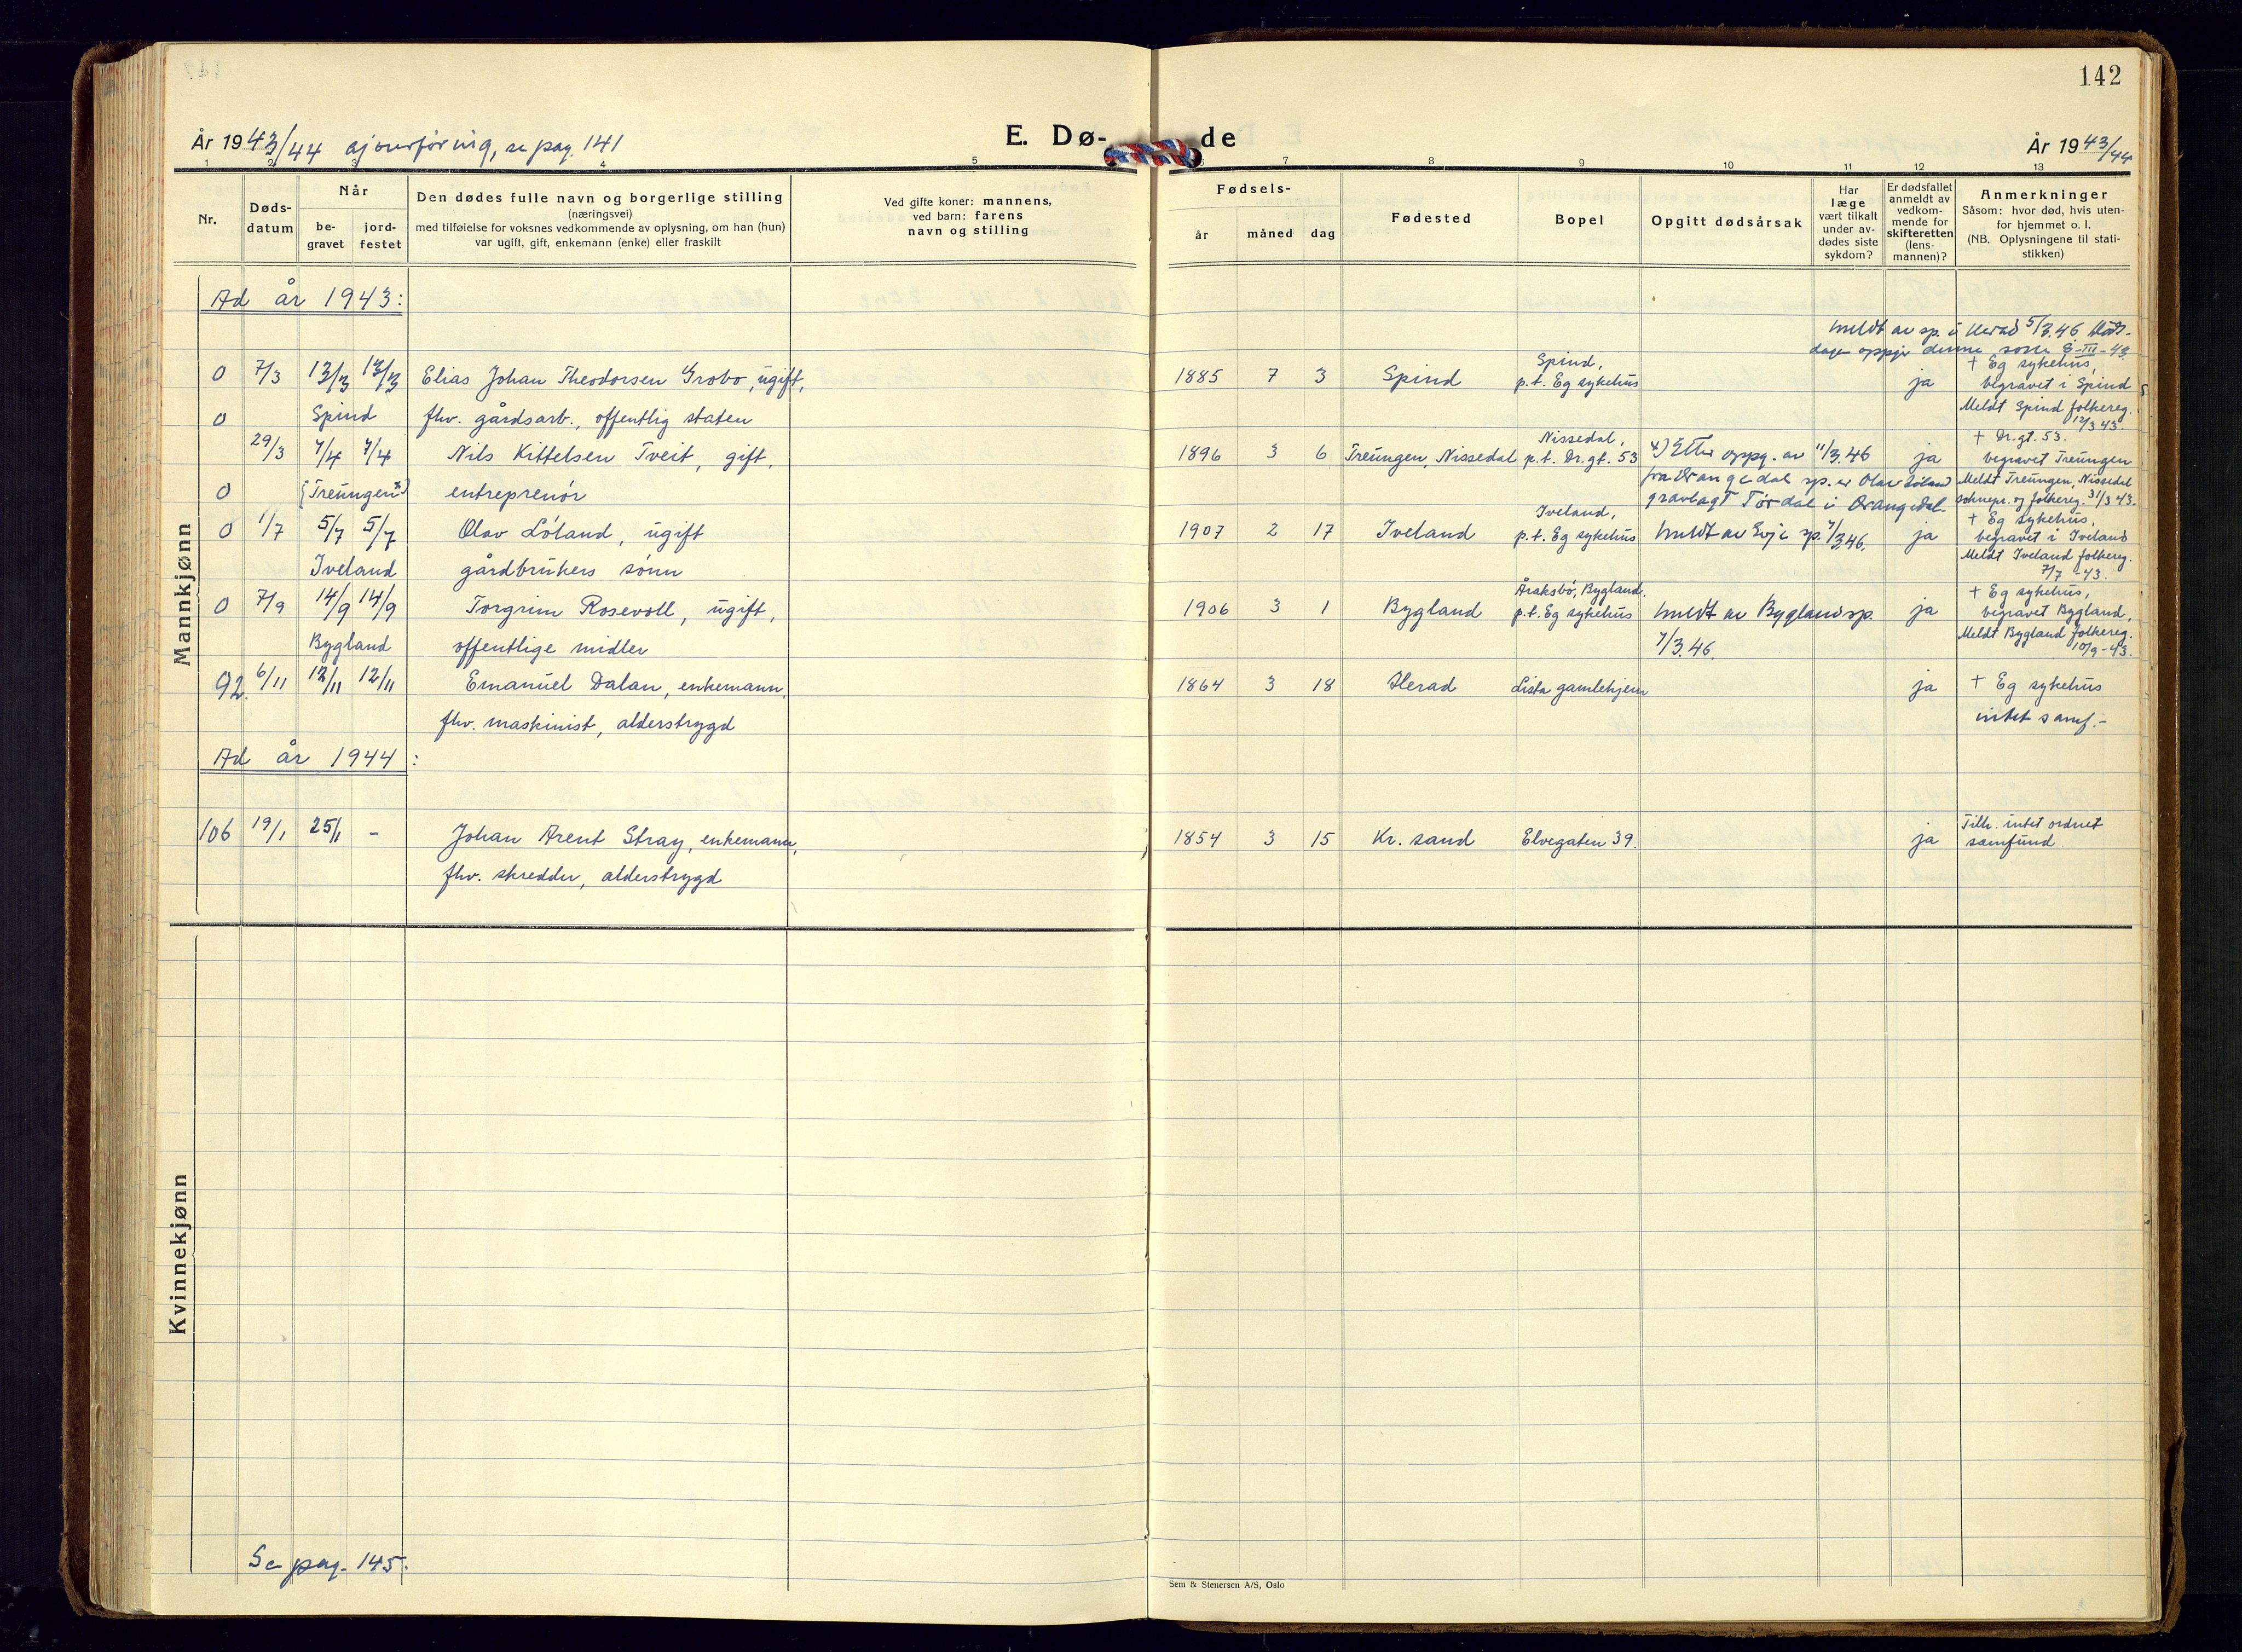 142
År 1943/44 ajourføring, se pag. 141
E. Dø-
de
År 1943/44
1 2 3 4 5 6 7 8 9 10 11 12 13
Nr.
Døds-
datum
Når
be-
gravet
jord-
festet
Den dødes fulle navn og borgerlige stilling
(næringsvei)
med tilføielse for voksnes vedkommende av oplysning, om han (hun)
var ugift, gift, enkemann (enke) eller fraskilt
Ved gifte koner: mannens,
ved barn: farens
navn og stilling
Fødsels-
år måned dag
Fødested
Bopel
Opgitt dødsårsak
Har
læge
vært tilkalt
under av-
dødes siste
sykdom?
Er dødsfallet
anmeldt av
vedkom-
mende for
skifteretten
(lens-
mannen)?
Anmerkninger
Såsom: hvor død, hvis uten-
for hjemmet o. l.
(NB. Oplysningene til stati-
stikken)
Mannkjønn
Ad år 1943:
meldt av sp. i Herad 5/3.46 Døds-
dagen oppgir denne som 8-III-43.
0 7/3 13/3 13/3 Elias Johan Theodorsen Grobo, ugift, 1885 7 3 Spind Spind,
p.t. Eg sykehus ja † Eg sykehus,
begravet i Spind
0 Spind fhv. gårdsarb., offentlig staten Meldt Spind folkereg.
12/3 43.
29/3 7/4 7/4 Nils Kittelsen Tveit, gift, 1896 3 6 Treungen, Nissedal Nissedal,
p.t. Dr.gt. 53 x) Etter oppg. av 11/3.46 ja † Dr.gt. 53.
begravet Treungen
0 (Treungen x) entreprenør fra Drangedal sp. er Olav Løland
gravlagt Tørdal i Drangedal. Meldt Treungen, Nissedal
soknepr. og folkereg. 31/3 43.
0 1/7 5/7 5/7 Olav Løland, ugift 1907 2 17 Iveland Iveland,
p.t. Eg sykehus meldt av Evje sp. 7/3.46. ja † Eg sykehus,
begravet i Iveland
Iveland gårdbrukers sønn Meldt Iveland folkereg.
7/7 -43.
0 7/9 14/9 14/9 Torgrim Rosevoll, ugift, 1906 3 1 Bygland Åraksbø, Bygland.
p.t. Eg sykehus meldt av Bygland sp. ja † Eg sykehus,
begravet Bygland,
Bygland offentlige midler 7/3.46. Meldt Bygland folkereg.
10/9 -43.
92. 6/11 12/11 12/11 Emanuel Dalan, enkemann, 1864 3 18 Herad Lista gamlehjem ja † Eg sykehus
fhv. maskinist, alderstrygd intet samf.-
Ad år 1944:
106 19/1 25/1 - Johan Arent Stray, enkemann, 1854 3 15 Kr. sand Elvegaten 39. ja Tilh. intet ordnet
samfund
fhv. skredder, alderstrygd
Kvinnekjønn
Se pag. 145.
Sem & Stenersen A/S, Oslo